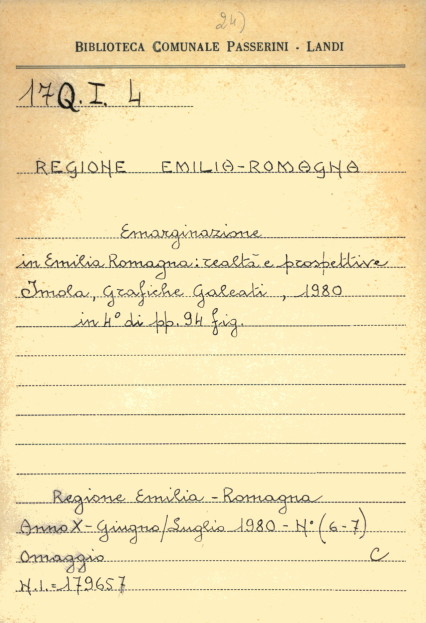 24)
BIBLIOTECA COMUNALE PASSERINI - LANDI
17Q.I. 4
REGIONE EMILIA-ROMAGNA
Emarginazione
in Emilia Romagna: realtà e prospettive
Imola, Grafiche Galeati, 1980
in 4° di pp. 94 fig.
Regione Emilia-Romagna
Anno X - Giugno/Luglio 1980 - N° (6-7)
Omaggio C
N.I. = 179657